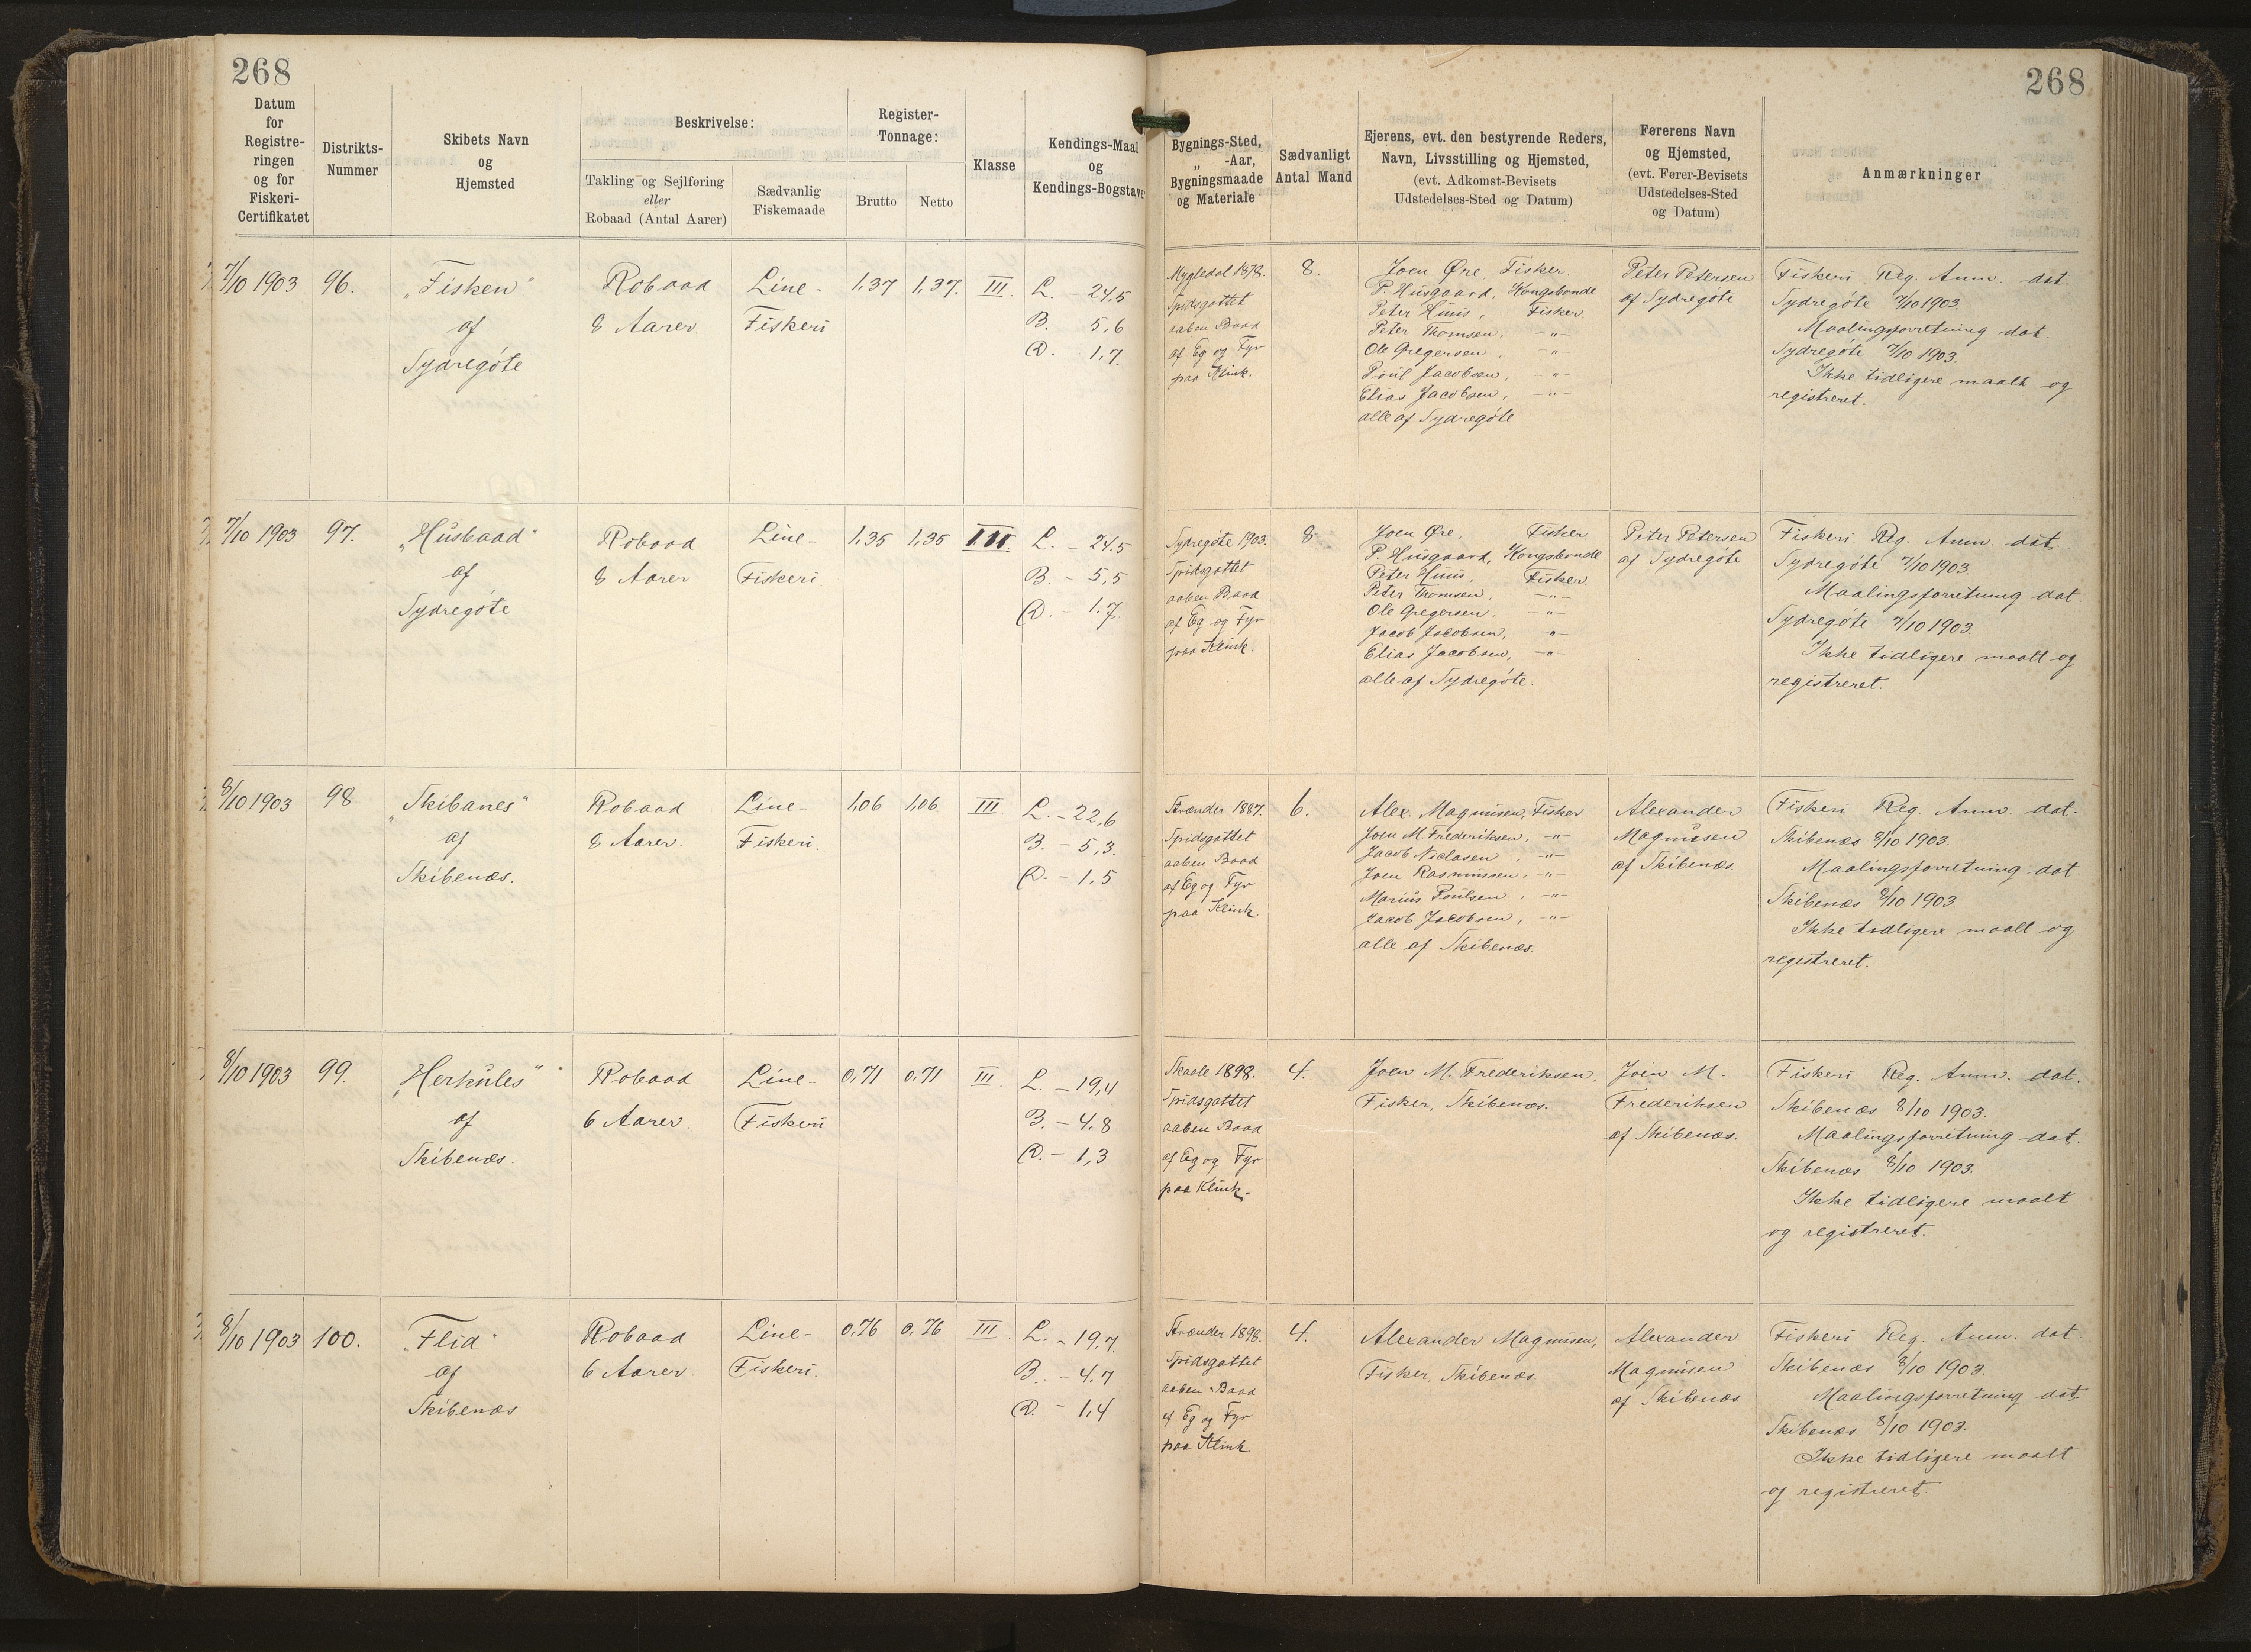 268
268
Datum
for
Registre-
ringen
og for
Fiskeri-
Certifikatet
Distrikts-
Nummer
Skibets Navn
og
Hjemsted
Beskrivelse:
Takling og Sejlføring
eller
Robaad (Antal Aarer)
Sædvanlig
Fiskemaade
Register-
Tonnage:
Brutto
Netto
Klasse
Kendings-Maal
og
Kendings-Bogstaver
Bygnings-Sted,
„ -Aar,
Bygningsmaade
og Materiale
Sædvanligt
Antal Mand
Ejerens, evt. den bestyrende Reders,
Navn, Livsstilling og Hjemsted,
(evt. Adkomst-Bevisets
Udstedelses-Sted og Datum)
Førerens Navn
og Hjemsted,
(evt. Fører-Bevisets
Udstedelses-Sted
og Datum)
Anmærkninger
7/10 1903
96.
„Fisken"
af
Sydregøte
Robaad
8 Aarer.
Line-
Fiskeri
1,37
1,37.
III.
L. - 24,5
B. 5,6
D. 1,7
Mygledal 1878.
Spidsgattet
aaben Baad
af Eg og Fyr
paa Klink.
8.
Joen Øre, Fisker.
P. Husgaard, Kongsbonde
Peter Huus, Fisker
Peter Thomsen, -"-
Ole Gregersen, -"-
Poul Jacobsen, -"-
Elias Jacobsen, -"-
alle af Sydregøte
Peter Petersen
af Sydregøte
Fiskeri Reg. Anm. dat.
Sydregøte 7/10 1903.
Maalingsforretning dat
Sydregøte 7/10 1903.
Ikke tidligere maalt og
registreret.
7/10 1903
97.
„Husbaad"
af
Sydregøte
Robaad
8 Aarer
Line-
Fiskeri
1,35
1,35
III.
L. - 24,5
B. - 5,5
D. - 1,7.
Sydregøte 1903.
Spidsgattet
aaben Baad
af Eg og Fyr
paa Klink.
8
Joen Øre, Fisker.
P. Husgaard, Kongsbonde
Peter Huus, Fisker.
Peter Thomsen, -"-
Ole Gregersen. -"-
Jacob Jacobsen, -"-
Elias Jacobsen, -"-
alle af Sydregøte.
Peter Petersen
af Sydregøte
Fiskeri Reg. Anm. dat.
Sydregøte 7/10 1903.
Maalingsforretning dat.
Sydregøte 7/10 1903.
Ikke tidligere maalt og
registreret.
8/10 1903
98
„Skibanes"
af
Skibenæs.
Robaad
8 Aarer.
Line-
Fiskeri.
1,06
1,06
III
L. - 22,6
B. - 5,3.
D. - 1,5
Strænder 1887.
Spidsgattet
aaben Baad
af Eg og Fyr
paa Klink.
6.
Alex. Magnusen, Fisker
Joen M. Frederiksen, -"-
Jacob Niclasen, -"-
Joen Rasmussen, -"-
Marius Poulsen, -"-
Jacob Jacobsen, -"-
alle af Skibenæs.
Alexander
Magnusen
af Skibenæs.
Fiskeri Reg. Anm. dat.
Skibenæs 8/10 1903.
Maalingsforretning dat.
Skibenæs 8/10 1903.
Ikke tidligere maalt og
registreret.
8/10 1903
99.
„Herkules"
af
Skibenæs.
Robaad
6 Aarer.
Line-
Fiskeri
0,71
0,71
III.
L. - 19,4
B. - 4,8
D. - 1,3
Skaale 1898.
Spidsgattet
aaben Baad
af Eg og Fyr
paa Klink.
4.
Joen M. Frederiksen.
Fisker, Skibenæs.
Joen M.
Frederiksen
af Skibenæs.
Fiskeri Reg. Anm. dat.
Skibenæs 8/10 1903.
Maalingsforretning dat.
Skibenæs 8/10 1903.
Ikke tidligere maalt
og registreret.
8/10 1903
100.
„Flid"
af
Skibenæs
Robaad
6 Aarer.
Line-
Fiskeri.
0,76
0,76
III.
L. - 19,7.
B. - 4,7
D. - 1,4
Strænder 1898.
Spidsgattet
aaben Baad
af Eg og Fyr
paa Klink
4.
Alexander Magnusen,
Fisker, Skibenæs.
Alexander
Magnusen
af Skibenæs
Fiskeri Reg. Anm. dat
Skibenæs 8/10 1903.
Maalingsforretning dat.
Skibenæs 8/10 1903.
Ikke tidligere maalt
og registreret.